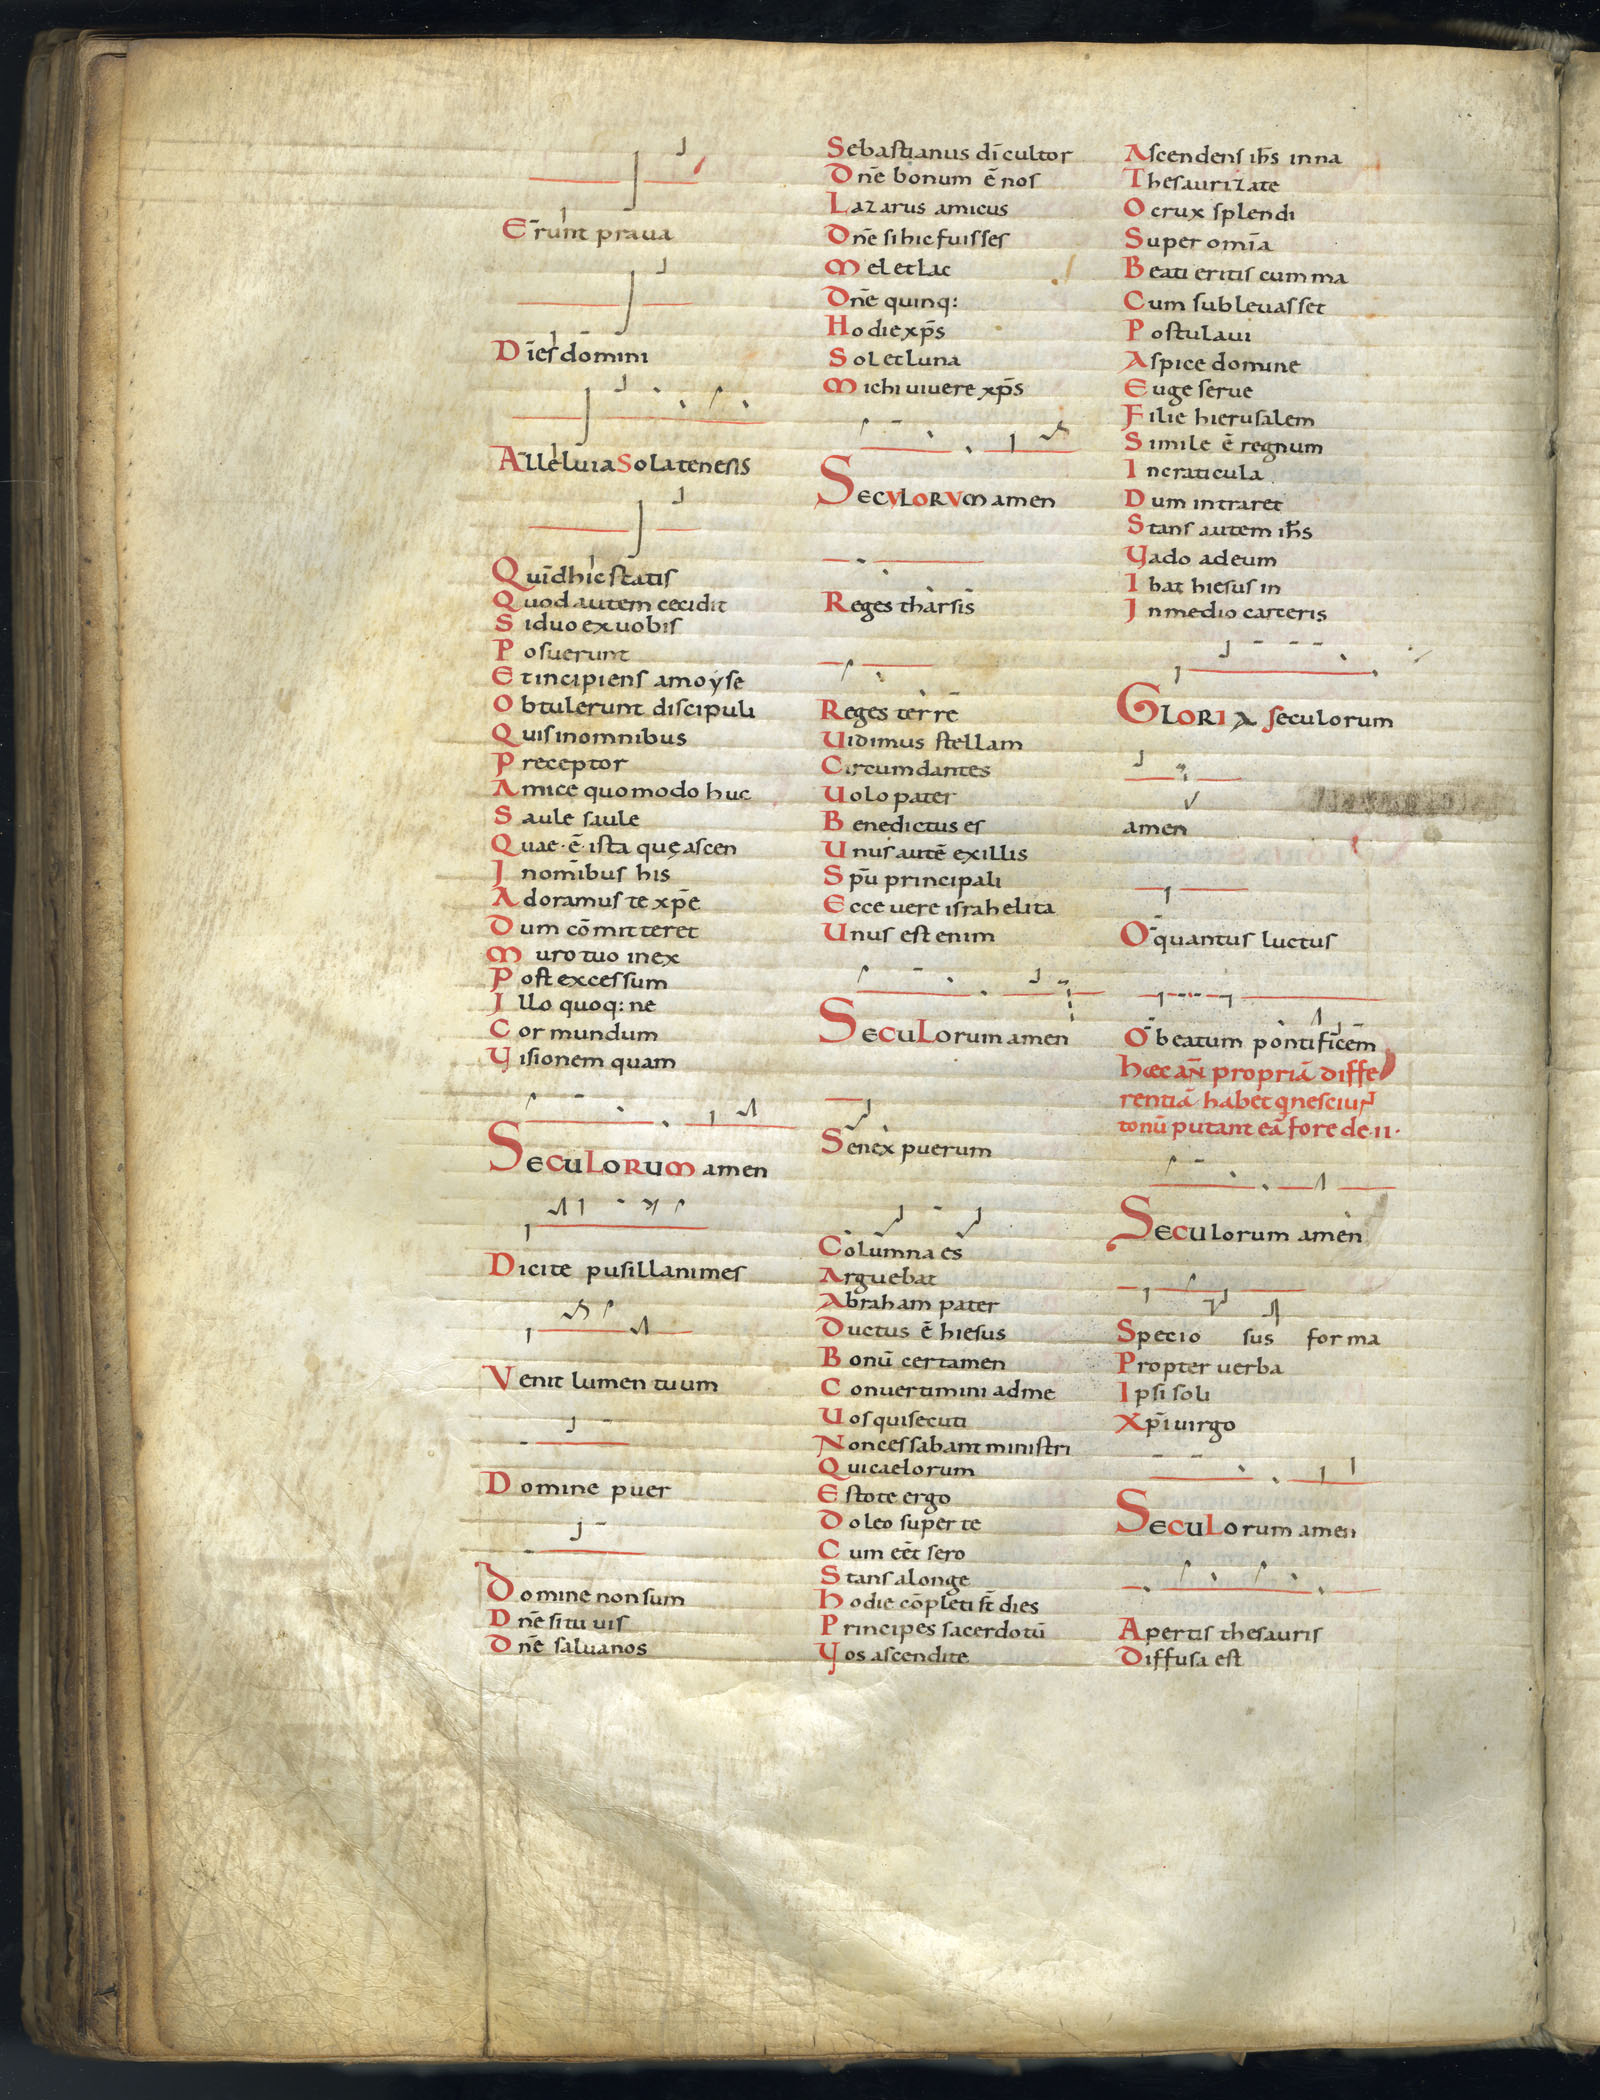 Erunt praua
Dies domini
Alleluia Sola tenesis
Quid hic statis
Quod autem cecidit
Si duo ex uobis
Posuerunt
Et incipiens a moyse
Obtulerunt discipuli
Quis in omnibus
Preceptor
Amice quomodo huc
Saule saule
Quae · ē · ista quę ascen
J nomībus his
Adoramus te xp̄e
Dum cōmitteret
Muro tuo inex
Post excessum
Illo quoq: ne
Cor mundum
Visionem quam
SECULORUM amen
Dicite pusillanimes
Venit lumen tuum
Domine puer
Domine non sum
Dn̄e si tu uis
Dn̄e salua nos
Sebastianus dī cultor
Dn̄e bonum ē nos
Lazarus amicus
Dn̄e si hic fuisses
Mel et lac
Dn̄e quinq:
Hodie xp̄s
Sol et luna
Michi uiuere xp̄s
SECVLORVM amen
Reges tharsis
Reges terre
Uidimus stellam
Circumdantes
Uolo pater
Benedictus es
Unus autē ex illis
Sp̄u principali
Ecce uere israhelita
Unus est enim
SECULorum amen
Senex puerum
Columna es
Arguebat
Abraham pater
Ductus ē hiesus
Bonū certamen
Conuertimini ad me
Uos qui secuti
Non cessabant ministri
Qui caelorum
Estote ergo
Doleo super te
Cum eēt sero
Stans a longe
Hodie cōpleti st̄ dies
Principes sacerdotū
Vos ascendite
Ascendens ih̄s in na
Thesaurizate
O crux splendi
Super omīa
Beati eritis cum ma
Cum subleuasset
Postulaui
Aspice domine
Euge serue
Filie hierusalem
Simile ē regnum
In craticula
Dum intraret
Stans autem ih̄s
Vado ad eum
Ibat hiesus in
In medio carceris
GLORIA seculorum
amen
O quantus luctus
O beatum pontificem
hæc an̄ propriā diffe
rentiā habet q nesciunt
tonū putant eā fore de · ii ·
SECUlorum amen
Specio sus forma
Propter uerba
Ipsi soli
Xp̄i uirgo
SECULorum amen
Apertis thesauris
Diffusa est